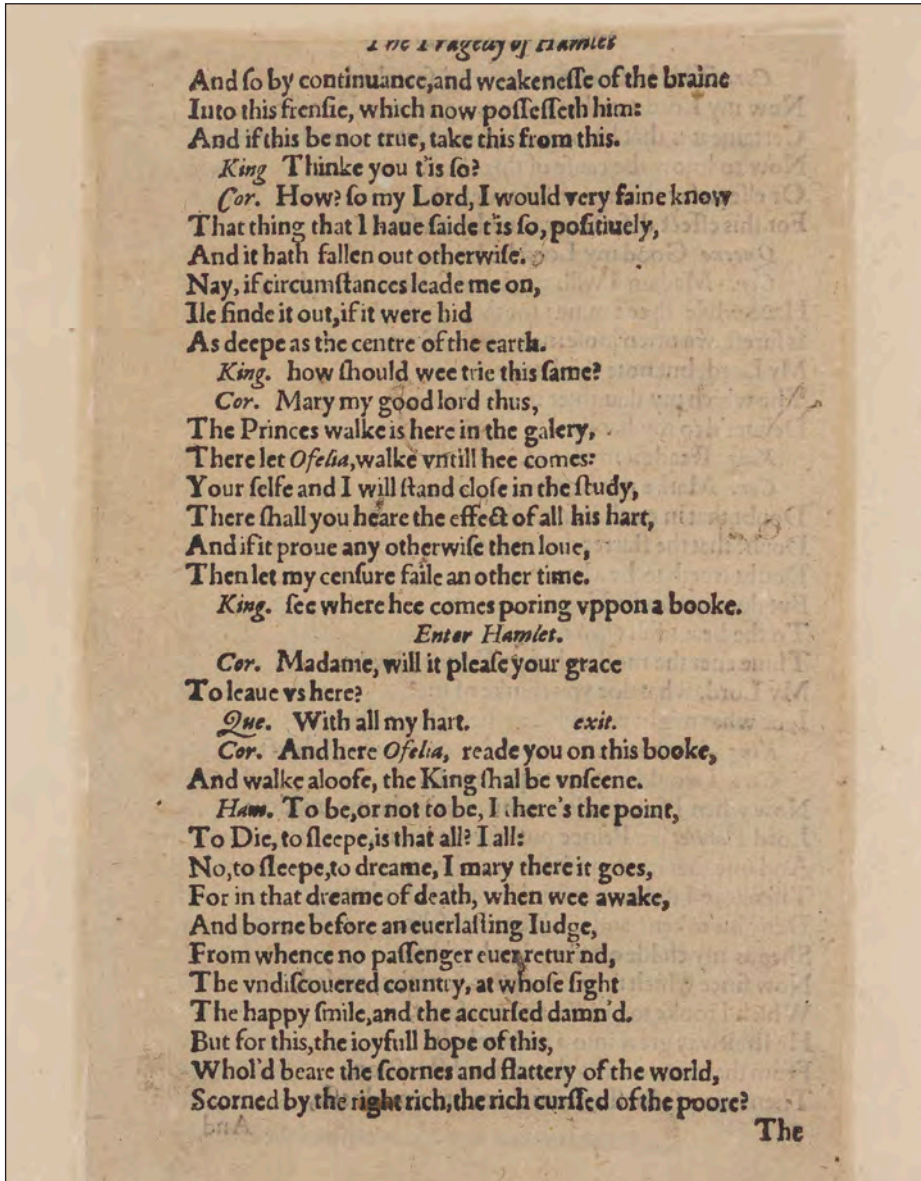 The Tragedy of Hamlet
And ſo by continuance,and weakeneſſe of the braine
Into this frenſie, which now poſſeſſeth him:
And if this be not true, take this from this.
King Thinke you t'is ſo?
Cor. How? ſo my Lord, I would very faine know
That thing that I haue ſaide t'is ſo, poſitiuely,
And it hath fallen out otherwiſe.
Nay, if circumſtances leade me on,
Ile finde it out,if it were hid
As deepe as the centre of the earth.
King. how ſhould wee trie this ſame?
Cor. Mary my good lord thus,
The Princes walke is here in the galery,
There let Ofelia,walke vntill hee comes:
Your ſelfe and I will ſtand cloſe in the ſtudy,
There ſhall you heare the effect of all his hart,
And if it proue any otherwiſe then loue,
Then let my cenſure faile an other time.
King. ſee where hee comes poring vppon a booke.
Enter Hamlet.
Cor. Madame, will it pleaſe your grace
To leaue vs here?
Que. With all my hart. exit.
Cor. And here Ofelia, reade you on this booke,
And walke alooſe, the King ſhal be vnſeene.
Ham. To be,or not to be, I there's the point,
To Die, to ſleepe,is that all? I all:
No,to ſleepe,to dreame, I mary there it goes,
For in that dreame of death, when wee awake,
And borne before an euerlaſting Iudge,
From whence no paſſenger euer retur'nd,
The vndiſcouered country, at whoſe ſight
The happy ſmile,and the accurſed damn'd.
But for this,the ioyfull hope of this,
Whol'd beare the ſcornes and flattery of the world,
Scorned by the right rich,the rich curſſed of the poore?
The